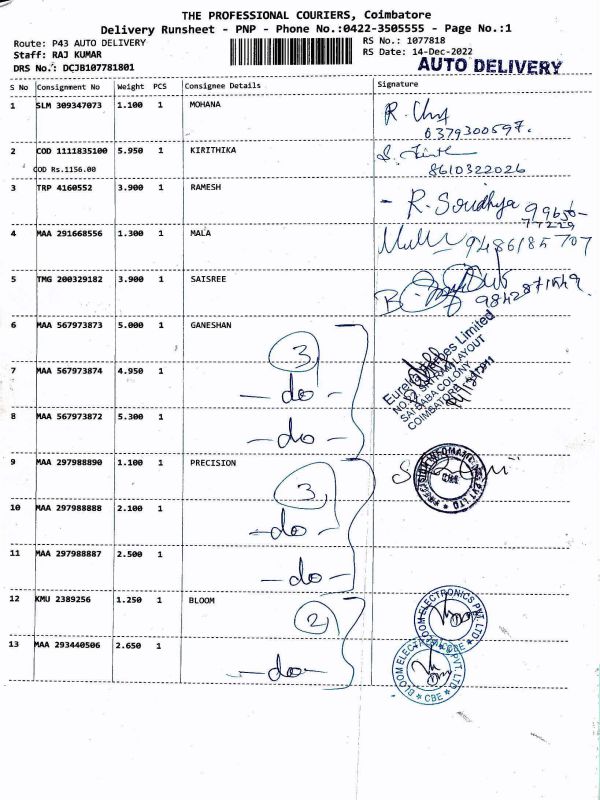 THE PROFESSIONAL COURIERS, Coimbatore
Delivery Runsheet - PNP - Phone No.:0422-3505555 - Page No.:1
Route: P43 AUTO DELIVERY RS No.: 1077818
Staff: RAJ KUMAR RS Date: 14-Dec-2022
DRS No.: DCJB107781801 AUTO DELIVERY
S No Consignment No Weight PCS Consignee Details Signature
1 SLM 309347073 1.100 1 MOHANA R.
6379300597.
2 COD 1111835100 5.950 1 KIRITHIKA S.
COD Rs.1156.00 8610322026
3 TRP 4160552 3.900 1 RAMESH - R. Soudhya 99656-
77229
4 MAA 291668556 1.300 1 MALA 9486185707
5 TMG 200329182 3.900 1 SAISREE
9842871549.
6 MAA 567973873 5.000 1 GANESHAN
3
7 MAA 567973874 4.950 1
- do -
8 MAA 567973872 5.300 1
- do -
Eureka Forbes Limited
LAYOUT
SAI BABA COLONY
COIMBATORE
9 MAA 297988890 1.100 1 PRECISION
3
PRECISION PVT LTD
10 MAA 297988888 2.100 1
- do -
11 MAA 297988887 2.500 1
- do -
12 KMU 2389256 1.250 1 BLOOM
2
BLOOM ELECTRONICS PVT. LTD
CBE
13 MAA 293440506 2.650 1
- do -
BLOOM ELECTRONICS PVT. LTD
CBE